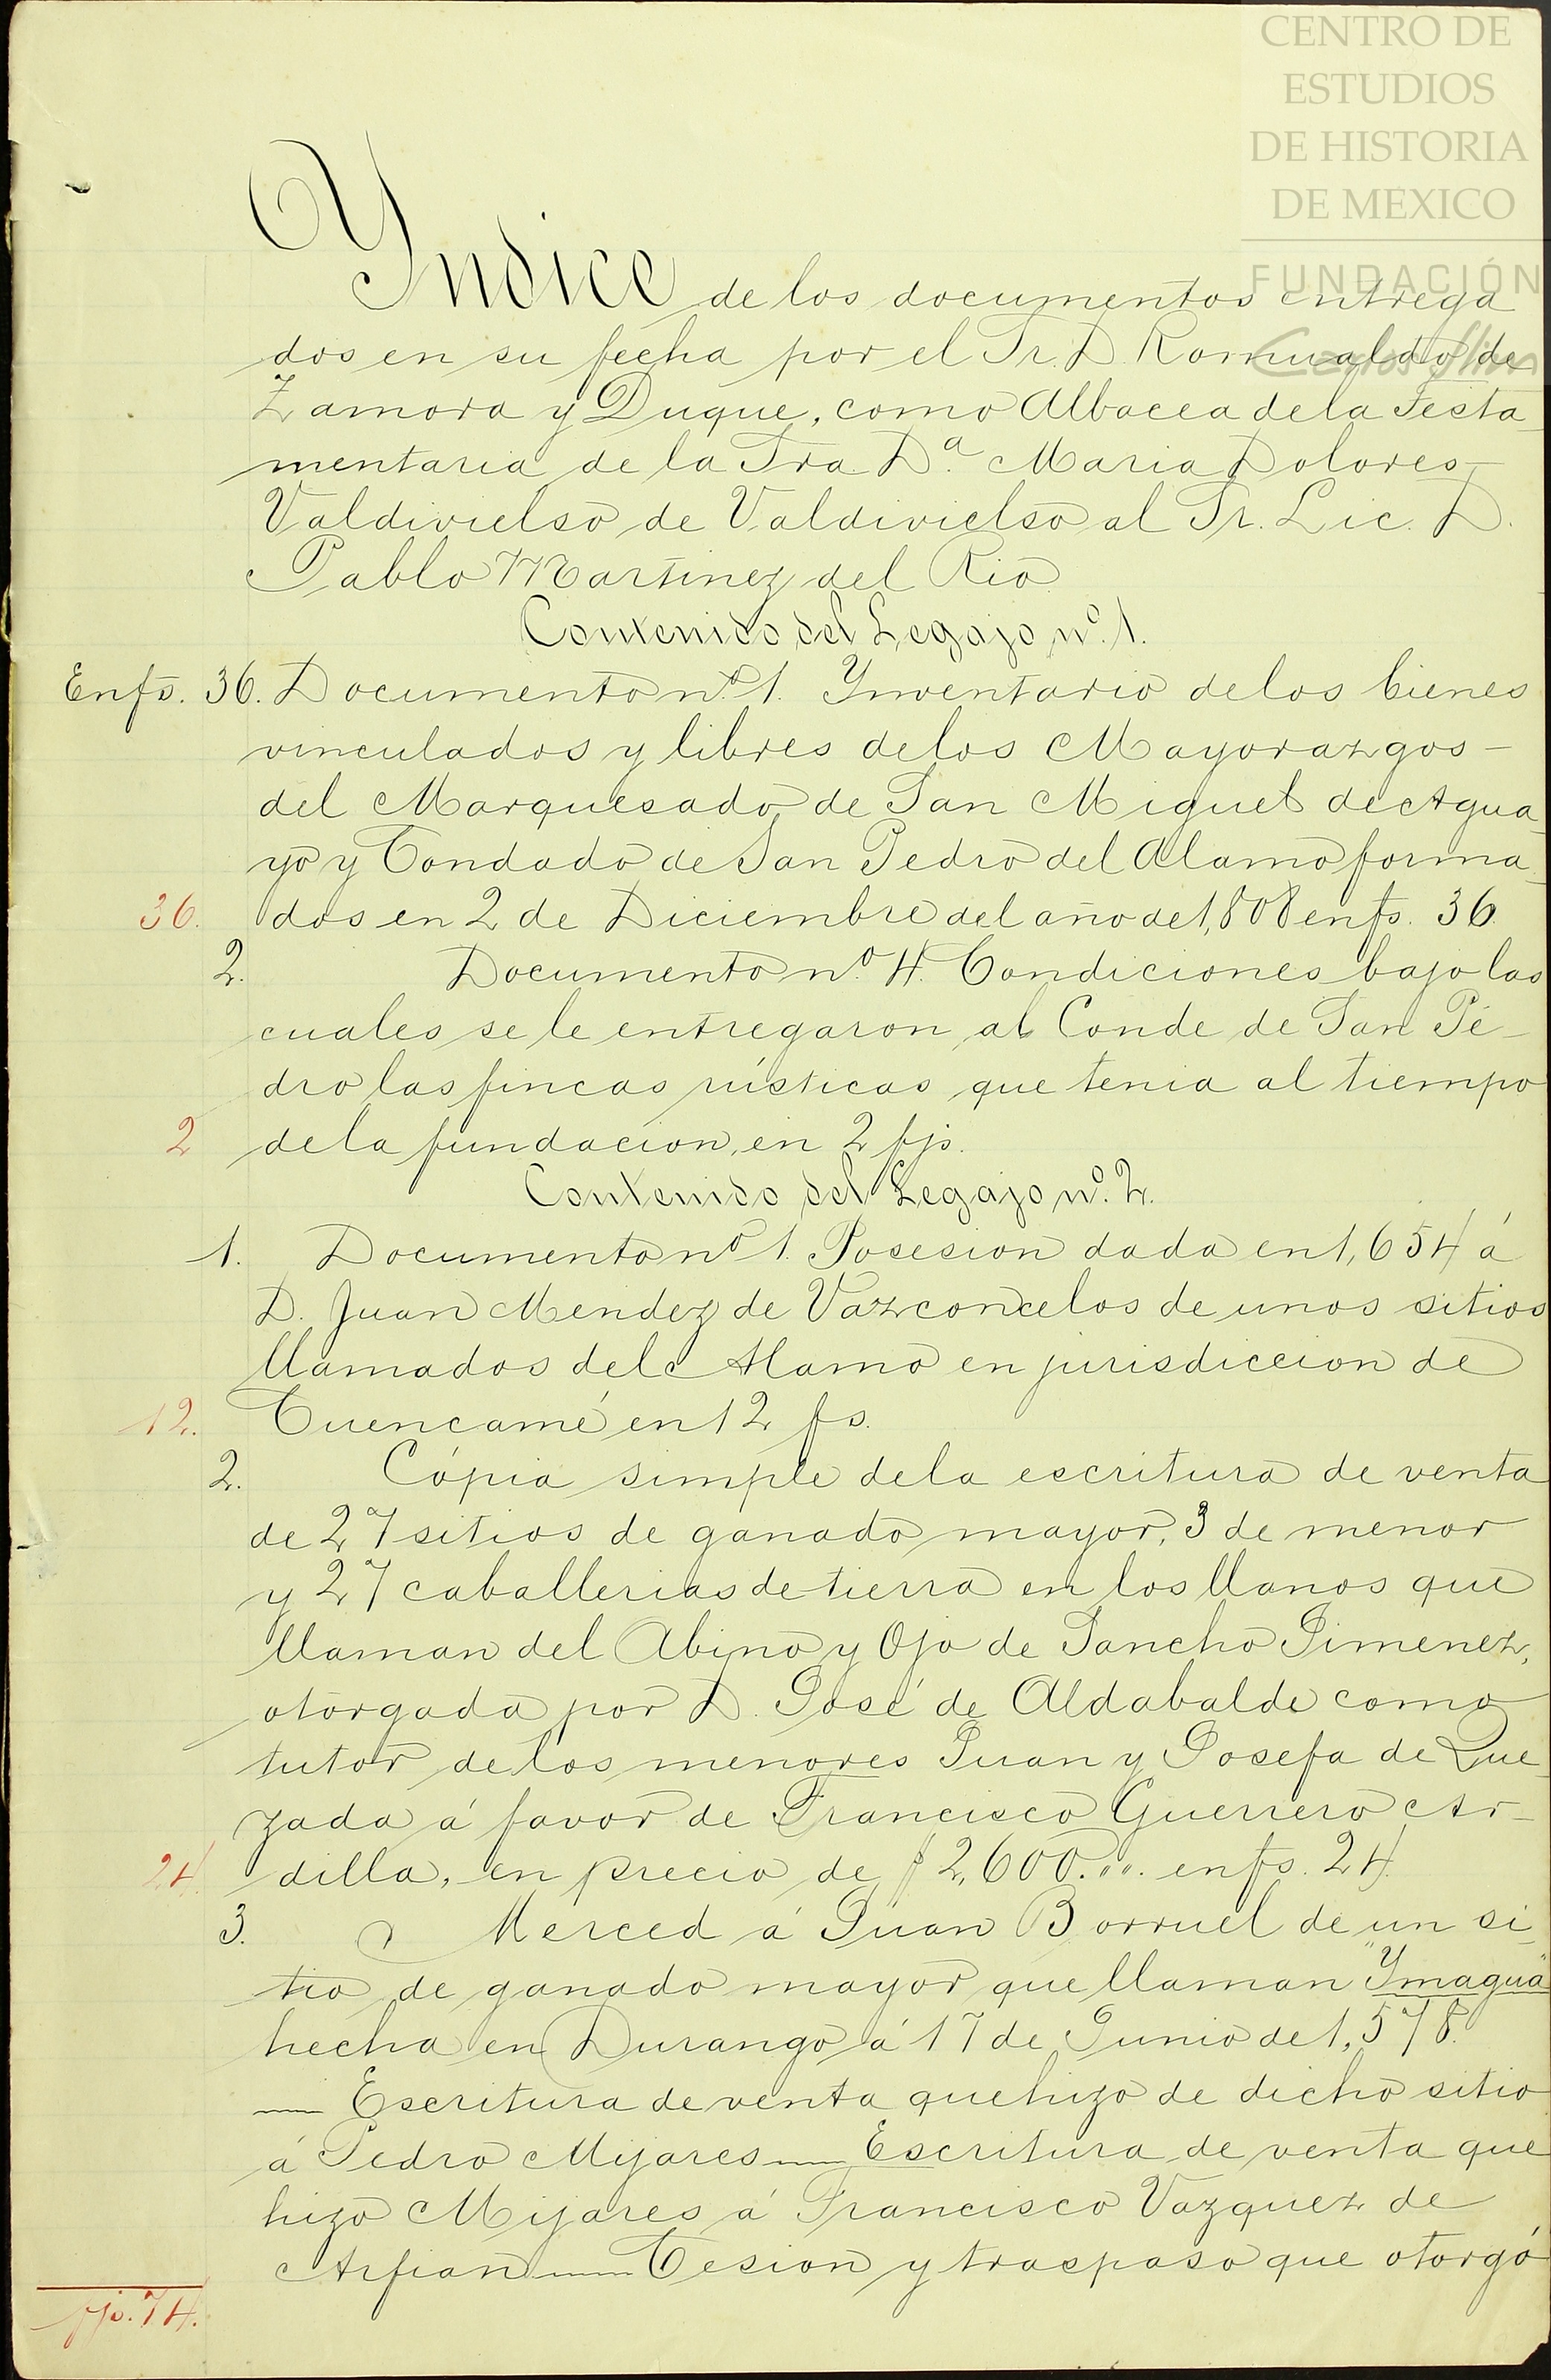 CENTRO DE
ESTUDIOS
DE HISTORIA
DE MÉXICO
FUNDACIÓN
Carlos Slim
Yndice de los documentos entrega
dos en su fecha por el Sr. D. Romualdo de
Zamora y Duque, como Albacea de la Testa
mentaria de la Sra. Dª Maria Dolores
Valdivielso de Valdivielso al Sr. Lic. D.
Pablo Martinez del Rio
Contenido del Legajo nº. 1.
Enfs. 36. Documento nº 1. Ynventario de los bienes
vinculados y libres de los Mayorazgos -
del Marquesado de San Miguel de Agua
yo y Condado de San Pedro del Alamo forma
36. dos en 2 de Diciembre del año de 1,808 enfs. 36.
2. Documento nº 4. Condiciones bajo las
cuales se le entregaron al Conde de San Pe-
dro las fincas rústicas que tenia al tiempo
2 de la fundacion, en 2 fjs.
Contenido del Legajo nº. 2.
1. Documento nº 1. Posesion dada en 1,654 á
D. Juan Mendez de Vazconcelos de unos sitios
llamados del Alamo en jurisdiccion de
12. Cuencamé en 12 fs.
2. Cópia simple de la escritura de venta
de 27 sitios de ganado mayor, 3 de menor
y 27 caballerias de tierra en los llanos que
llaman del Abino y Ojo de Sancho Jimenez,
otorgada por D. José de Aldabalde como
tutor de los menores Juan y Josefa de Que
zada á favor de Francisco Guerrero Ar-
24. dilla, en precio de $2,600... enfs. 24.
3. Merced á Juan Borruel de un si
tio de ganado mayor que llaman "Ymagua"
hecha en Durango á 17 de Junio de 1,578.
— Escritura de venta que hizo de dicho sitio
á Pedro Mijares — Escritura de venta que
hizo Mijares á Francisco Vazquez de
Arfian — Cesion y traspaso que otorgó
fjs. 74.